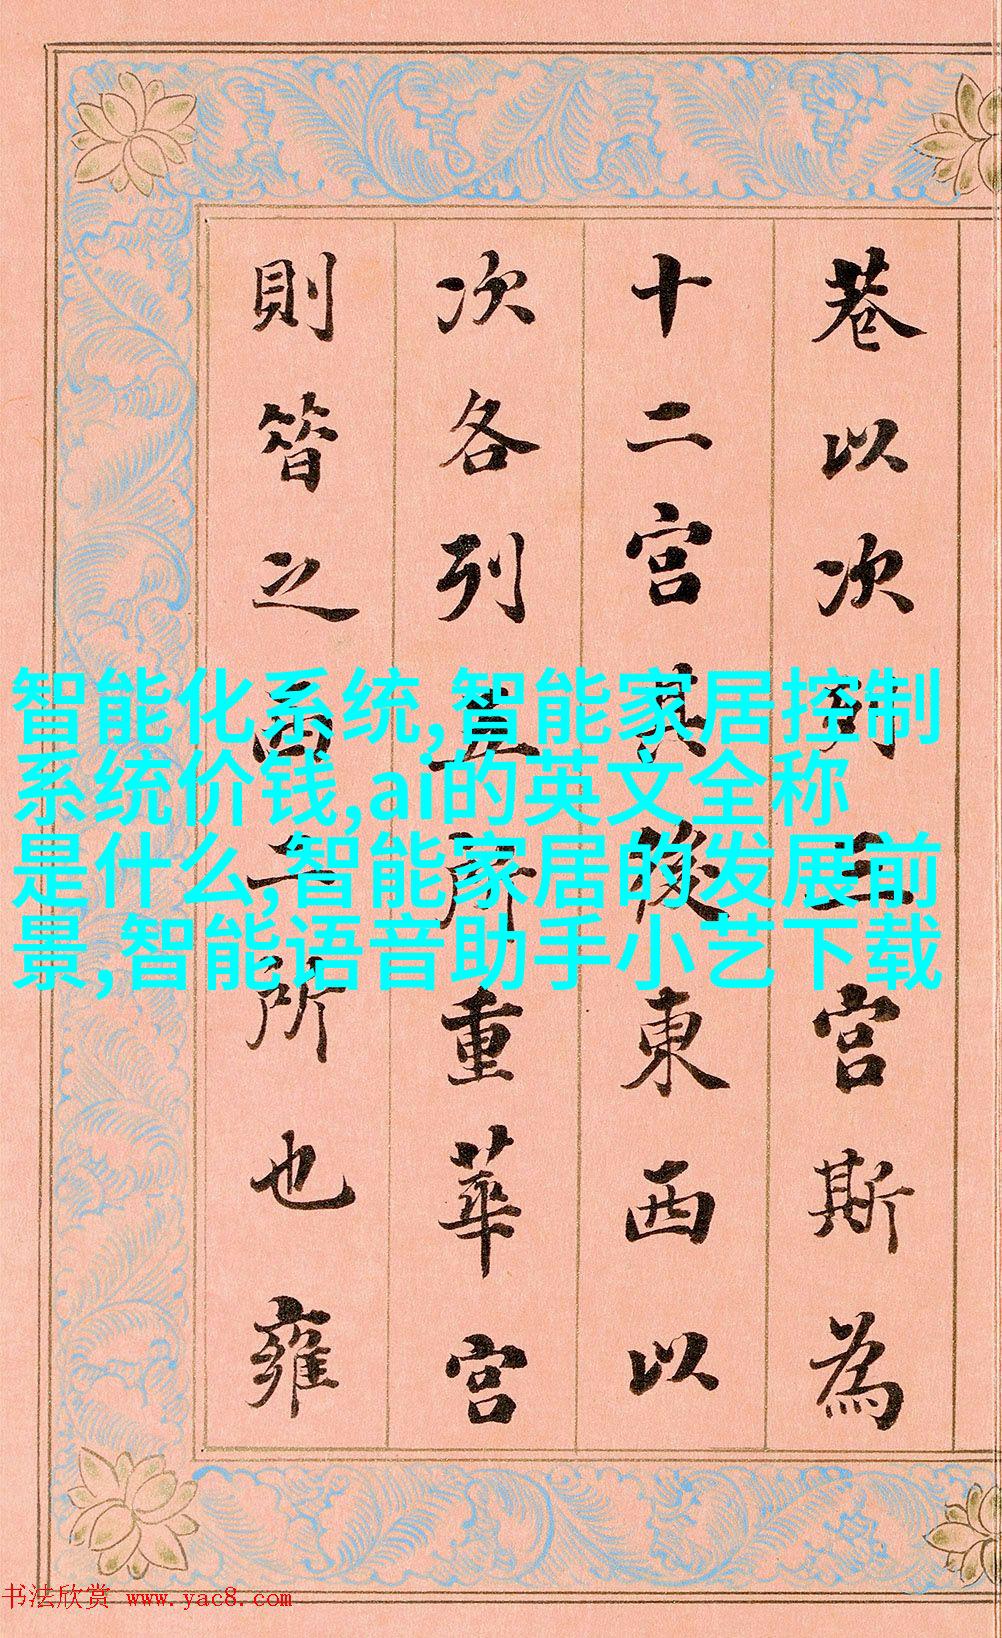 巷以次列三宫斯為
十二宫其後東西以
次各列五所重華宫
則昔之西二所也雍
智能化系统,智能家居控制
系统价钱,ai的英文全称
是什么,智能家居的发展前
景,智能语音助手小艺下载
书法欣赏 www.yac8.com